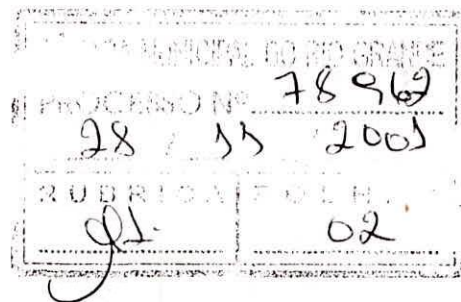 MUNICIPAL DO RIO GRANDE
PROCESSO Nº 78962
28 / 11 / 2001
RUBRICA FOLHA
02